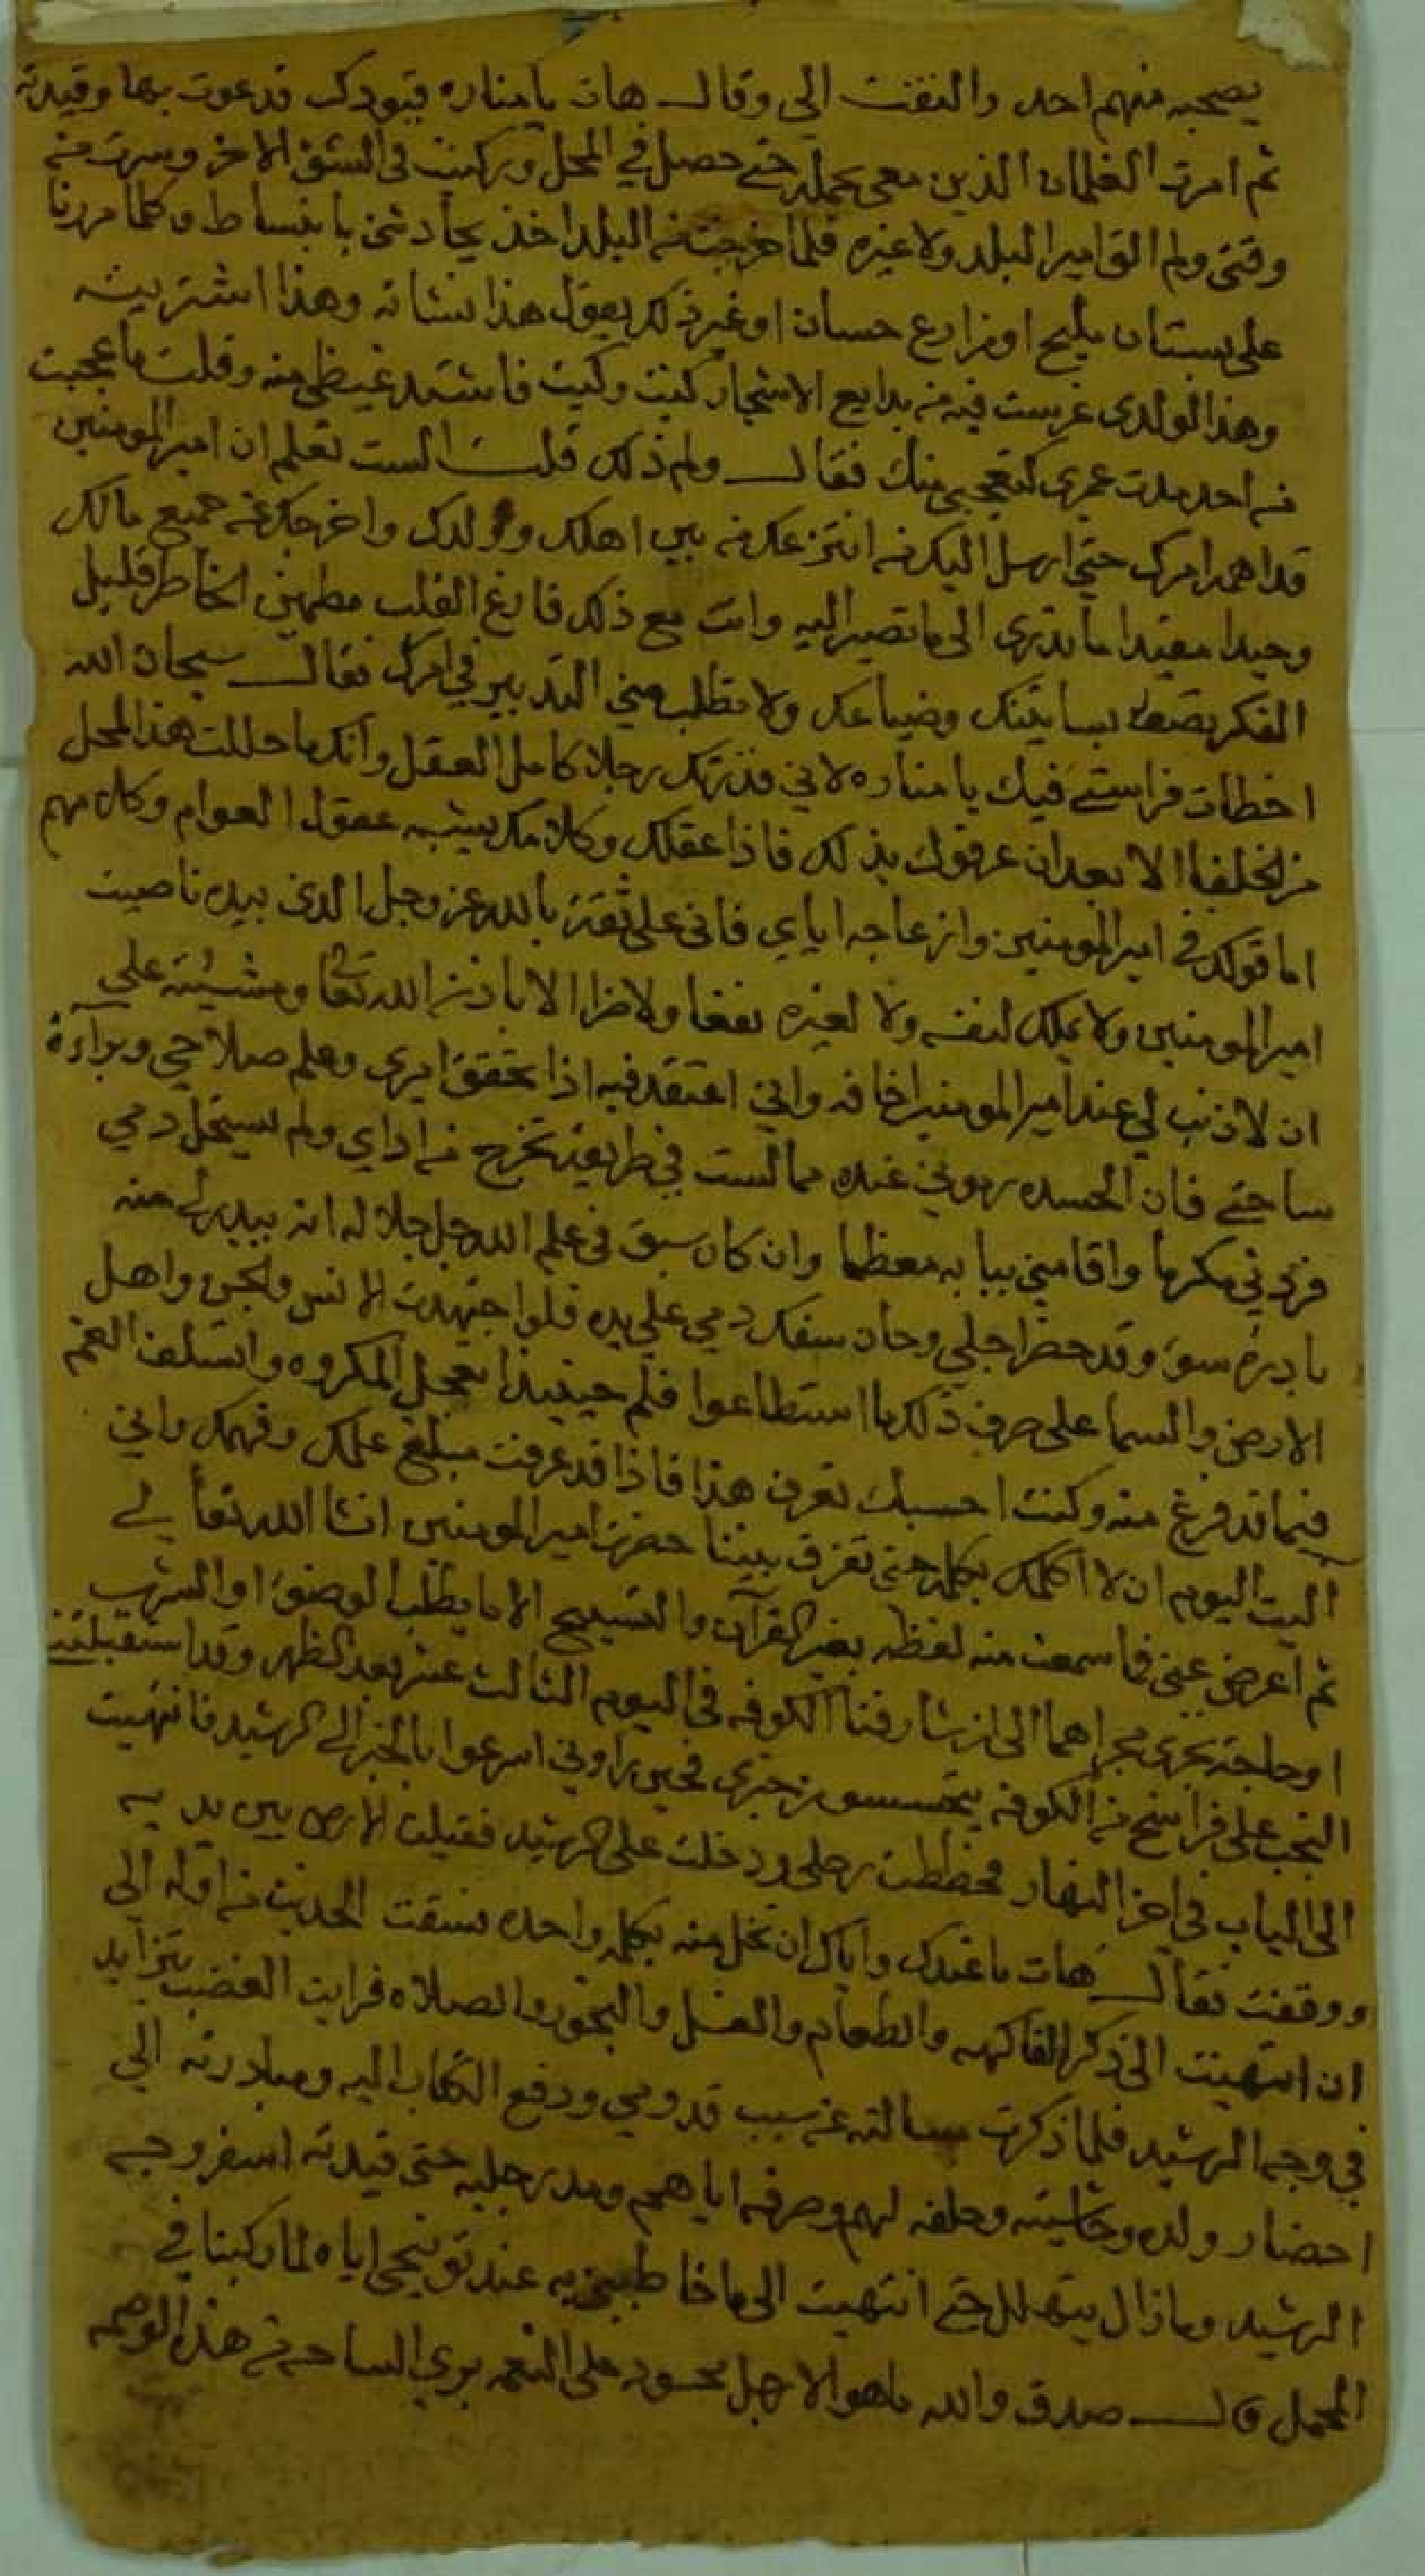 يصحبه منهم احد والتفت الي وقال هات يا مناره قيودك فدعوت بها وقيدته
ثم امرت الغلمان الذين معي بحمله حتى حصل في المحمل وركبت في الشق الاخر وسرت من
وقتي ولم الق امير البلد ولا غيره فلما خرجت من البلد اخذ يحادثني بانبساط وكلما مررنا
على بستان مليح او مزارع حسان او غير ذلك يقول هذا نشاته وهذا اشتريته
وهذا لولدي غرست فيه من بدايع الاشجار كيت وكيت فاشتد غيظي منه وقلت ما عجبت
من احد مدت عمري كتعجبي منك فقال ولم ذلك قلت الست تعلم ان امير المومنين
قد اهمه امرك حتى ارسل اليك من انتزعك من بين اهلك وولدك واخرجك عن جميع مالك
وحيدا مقيدا ما تدري الى ما تصير اليه وانت مع ذلك فارغ القلب مطمين الخاطر قليل
الفكر تصف بساتينك وضياعك ولا تطلب مني التدبير في امرك فقال سبحان الله
اخطات فراستي فيك يا مناره لاني قدرتك رجلا كامل العقل وانك ما حللت هذا المحل
من الخلفا الا بعد ان عرفوك بذلك فاذا عقلك وكلامك يشبه عقول العوام وكلامهم
اما قولك في امير المومنين وازعاجه اياي فاني على ثقة بالله عز وجل الذي بيده ناصيت
امير المومنين ولا يملك لنفسه ولا لغيره نفعا ولا ضرا الا باذن الله تعا ومشيئته على
ان لا ذنب لي عند امير المومنين اخافه واني اعتقد فيه اذا تحقق امري وعلم صلاحي وبراءة
ساحتي فان الحسده رموني عنده مما لست في طريقه تحرج من اذاي ولم يستحل دمي
فردني مكرما واقامني ببابه معظما وان كان سبق في علم الله جل جلاله انه يبدر لي منه
بادرة سوء وقد حضر اجلي وحان سفك دمي على يده فلو اجتهدت الانس والجن واهل
الارض والسما على صرف ذلك ما استطاعوا فلم حينيذ اتعجل المكروه واتسلف الغم
فيما قد فرغ منه وكنت احسبك تعرف هذا فاذا قد عرفت مبلغ علمك وفهمك واني
اليت اليوم ان لا اكلمك بكلمه حتى تفرق بيننا حضرت امير المومنين انشا الله تعا لي
ثم اعرض عني فما سمعت منه لفظه بغير القرآن والتسبيح الا ما يطلب لوضوء او الشرب
او حاجة تجري مجراهما الى ان شارفنا الكوفه في اليوم الثالث عشر بعد الظهر وقد استقبلتني
النجب على فراسخ من الكوفه يتحسسون خبري فحين راوني اسرعوا بالخبر الى الرشيد فانتهيت
الى الباب في اخر النهار فحططت رحلي ودخلت على الرشيد فقبلت الارض بين يديه
ووقفت فقال هات ما عندك واياك ان تخل منه بكلمه واحده فسقت الحديث من اوله الى
ان انتهيت الى ذكر الفاكهه والطعام والغسل والبخور والصلاه فرايت الغضب يتزايد
في وجه الرشيد فلما ذكرت مسالته عن سبب قدومي ودفع الكتاب اليه ومبادرته الى
احضار ولده وحاشيته وحلفه لهم وصرفه اياهم ومد رجليه حتى قيدته اسفر وجه
الرشيد وما زال يتهلل حتى انتهيت الى ما خاطبني به عند توبيخي اياه لما ركبنا في
المحمل قال صدق والله ما هو الا رجل محسود على النعمه بري الساحه من هذه الوصمه